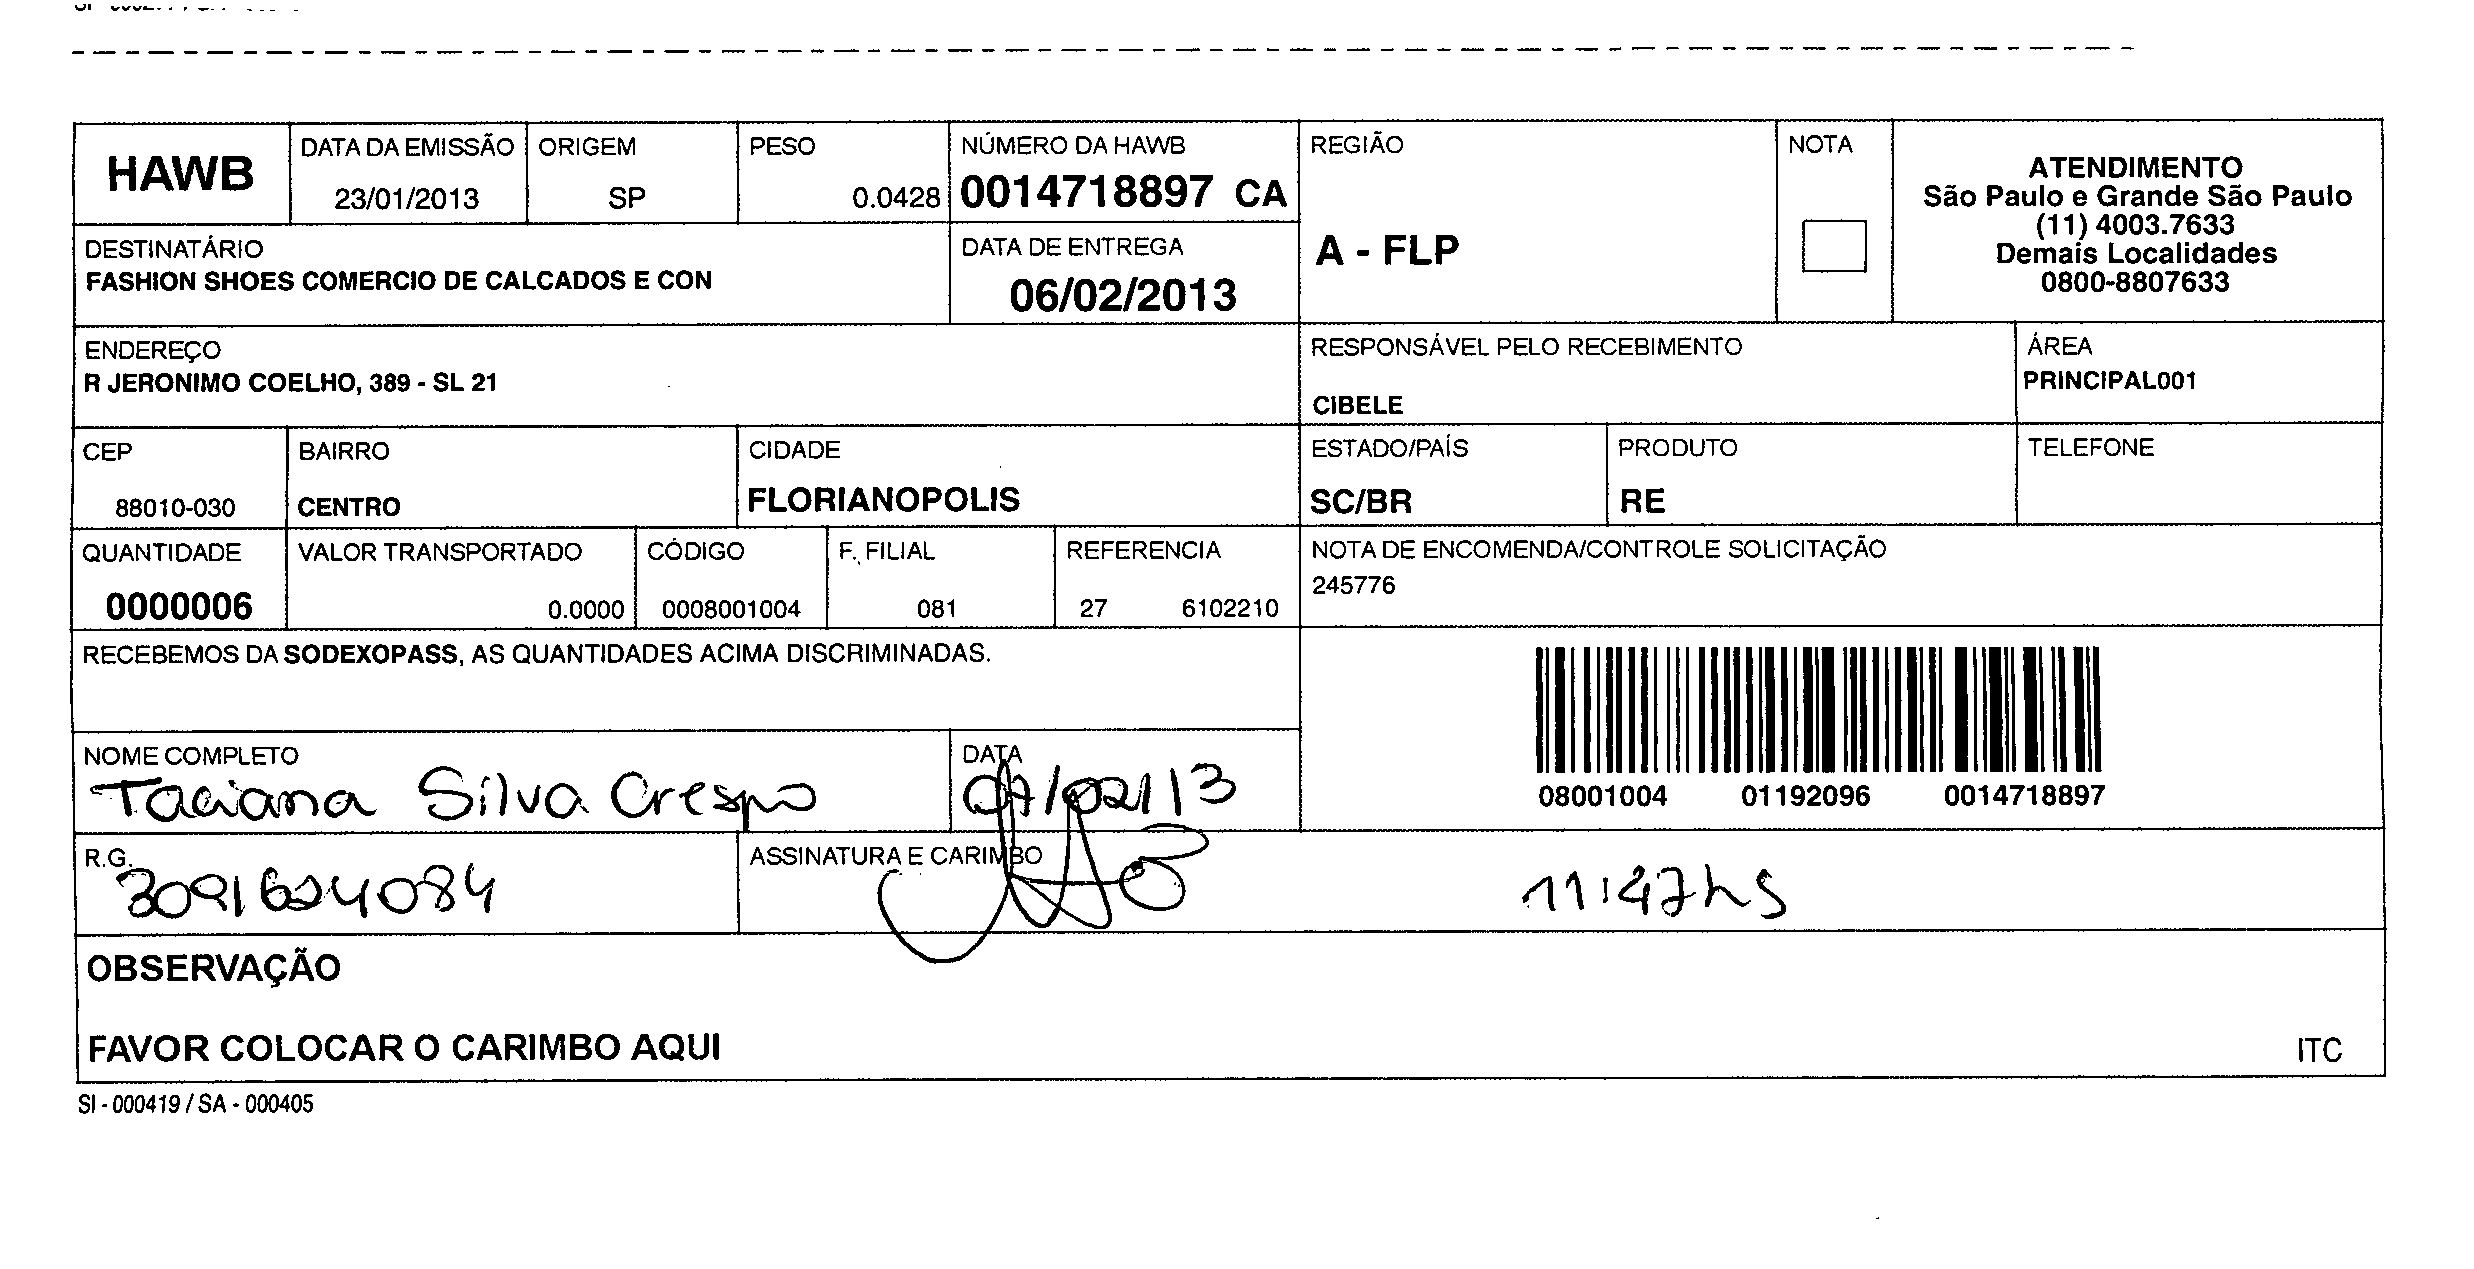 HAWB
DATA DA EMISSÃO
23/01/2013
ORIGEM
SP
PESO
0.0428
NÚMERO DA HAWB
0014718897 CA
REGIÃO
A - FLP
NOTA
ATENDIMENTO
São Paulo e Grande São Paulo
(11) 4003.7633
Demais Localidades
0800-8807633
DESTINATÁRIO
FASHION SHOES COMERCIO DE CALCADOS E CON
DATA DE ENTREGA
06/02/2013
ENDEREÇO
R JERONIMO COELHO, 389 - SL 21
RESPONSÁVEL PELO RECEBIMENTO
CIBELE
ÁREA
PRINCIPAL001
CEP
88010-030
BAIRRO
CENTRO
CIDADE
FLORIANOPOLIS
ESTADO/PAÍS
SC/BR
PRODUTO
RE
TELEFONE
QUANTIDADE
0000006
VALOR TRANSPORTADO
0.0000
CÓDIGO
0008001004
F. FILIAL
081
REFERENCIA
27 6102210
NOTA DE ENCOMENDA/CONTROLE SOLICITAÇÃO
245776
RECEBEMOS DA SODEXOPASS, AS QUANTIDADES ACIMA DISCRIMINADAS.
08001004 01192096 0014718897
NOME COMPLETO
Taciana Silva Crespo
DATA
07/02/13
R.G.
3091624084
ASSINATURA E CARIMBO
11:47hs
OBSERVAÇÃO
FAVOR COLOCAR O CARIMBO AQUI
ITC
SI - 000419 / SA - 000405